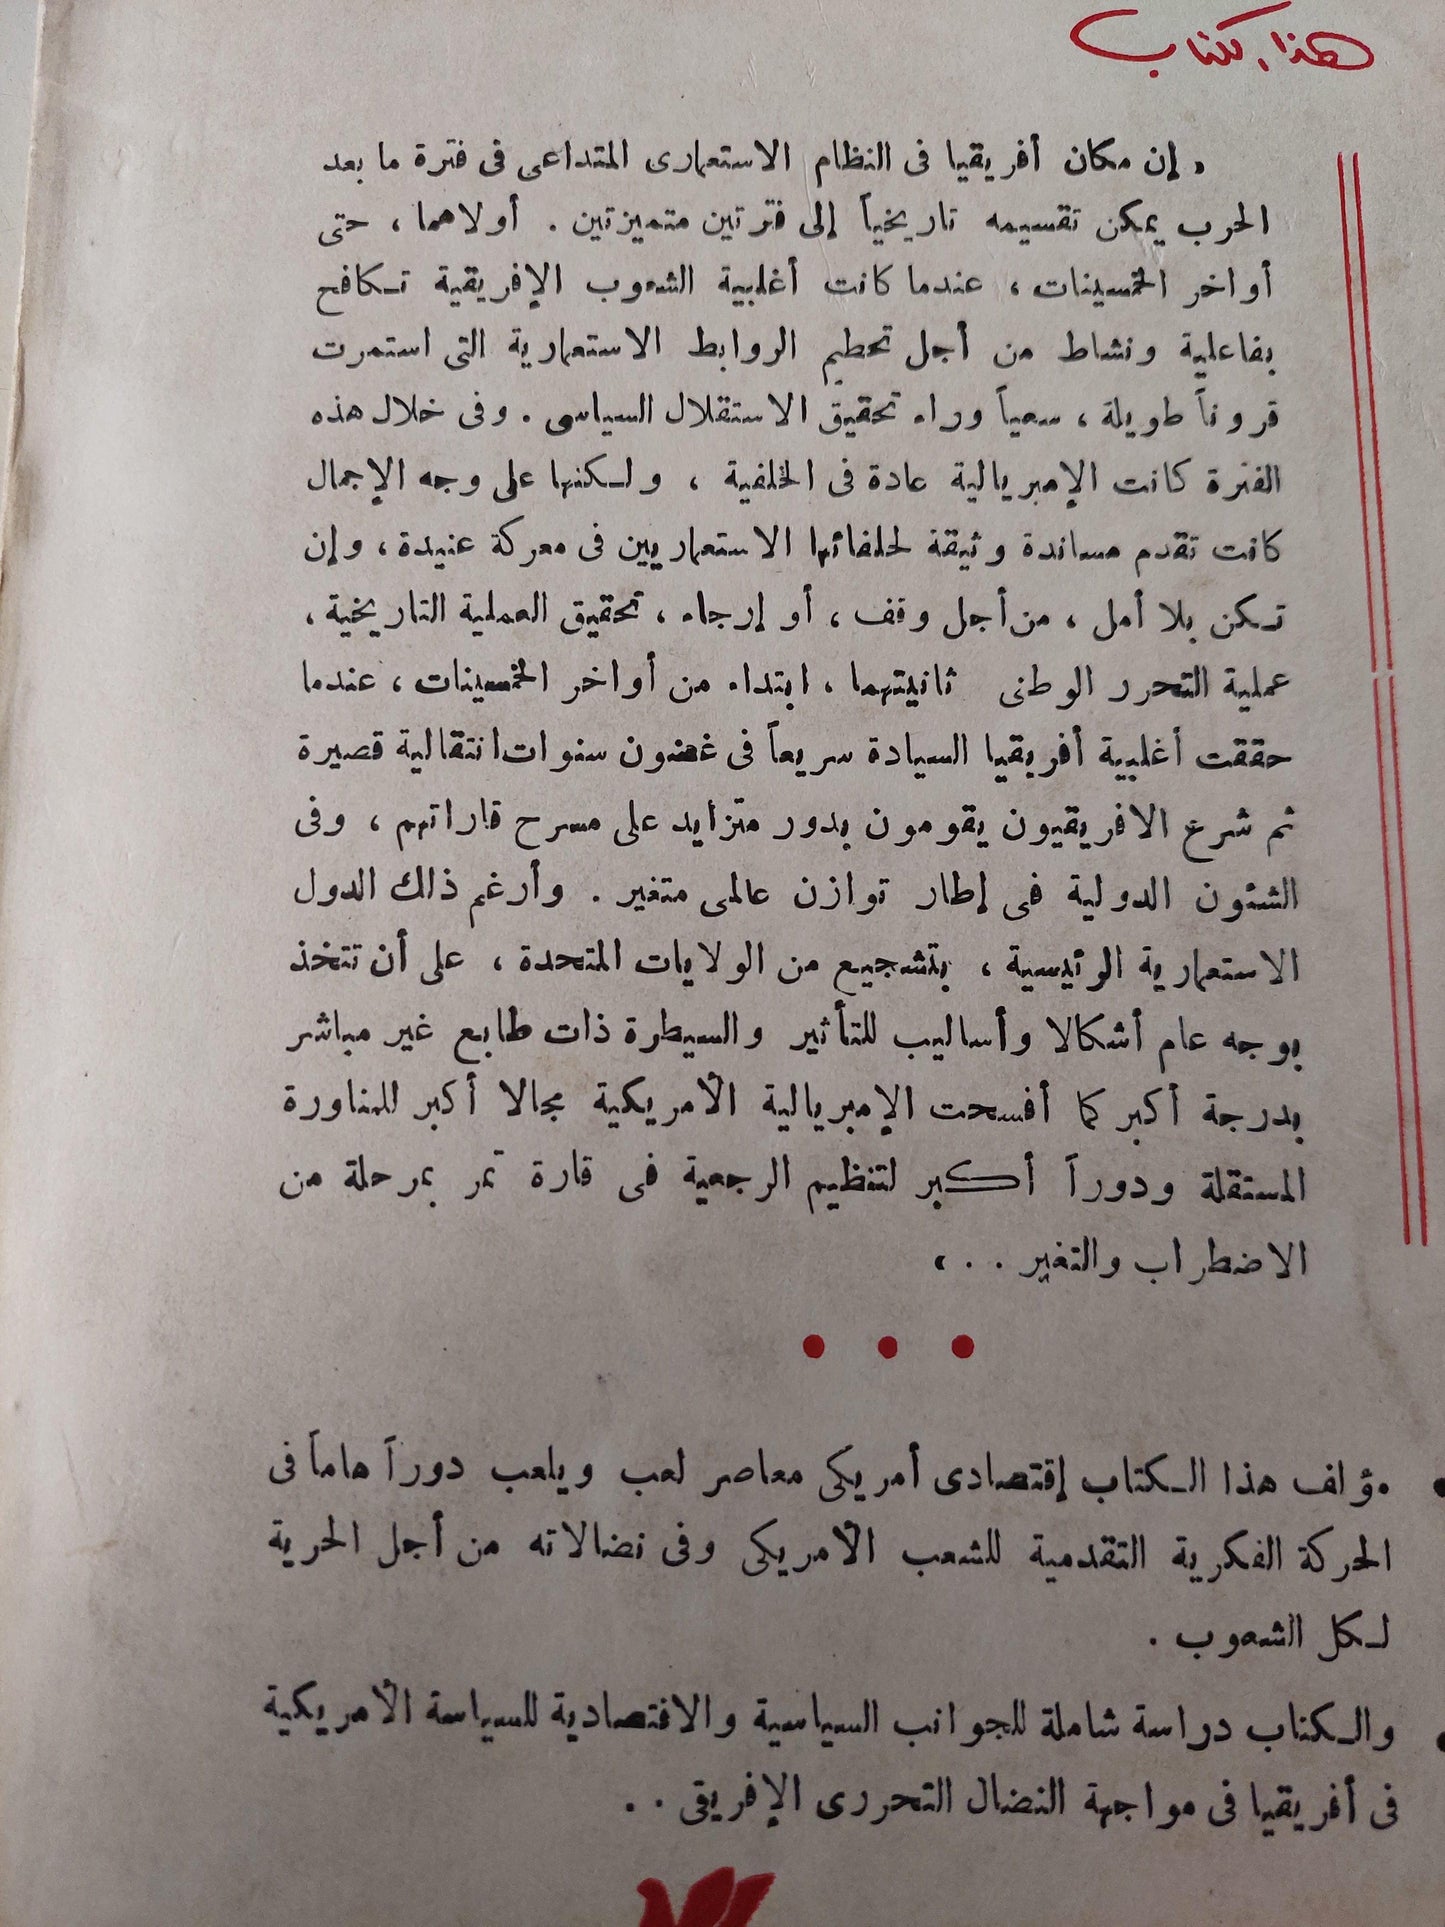 هذا الكتاب
« إن مكان أفريقيا فى النظام الاستعمارى المتداعى فى فترة ما بعد
الحرب يمكن تقسيمه تاريخياً إلى فترتين متميزتين . أولاهما ، حتى
أواخر الخمسينات ، عندما كانت أغلبية الشعوب الإفريقية تكافح
بفاعلية ونشاط من أجل تحطيم الروابط الاستعمارية التى استمرت
قروناً طويلة ، سعياً وراء تحقيق الاستقلال السياسى . وفى خلال هذه
الفترة كانت الإمبريالية عادة فى الخلفية ، ولكنها على وجه الإجمال
كانت تقدم مساندة وثيقة لحلفائها الاستعماريين فى معركة عنيدة ، وإن
تكن بلا أمل ، من أجل وقف ، أو إرجاء ، تحقيق العملية التاريخية ،
عملية التحرر الوطنى ثانيتهما ، ابتداء من أواخر الخمسينات ، عندما
حققت أغلبية أفريقيا السيادة سريعاً فى غضون سنوات انتقالية قصيرة
ثم شرع الافريقيون يقومون بدور متزايد على مسرح قاراتهم ، وفى
الشئون الدولية فى إطار توازن عالمى متغير . وأرغم ذلك الدول
الاستعمارية الرئيسية ، بتشجيع من الولايات المتحدة ، على أن تتخذ
بوجه عام أشكالا وأساليب للتأثير والسيطرة ذات طابع غير مباشر
بدرجة أكبر كما أفسحت الإمبريالية الأمريكية مجالا أكبر للمناورة
المستقلة ودوراً أكبر لتنظيم الرجعية فى قارة تمر بمرحلة من
الاضطراب والتغير . . »
• مؤلف هذا الكتاب إقتصادى أمريكى معاصر لعب ويلعب دوراً هاماً فى
الحركة الفكرية التقدمية للشعب الأمريكى وفى نضالاته من أجل الحرية
لكل الشعوب .
• والكتاب دراسة شاملة للجوانب السياسية والاقتصادية للسياسة الأمريكية
فى أفريقيا فى مواجهة النضال التحررى الإفريقى . .